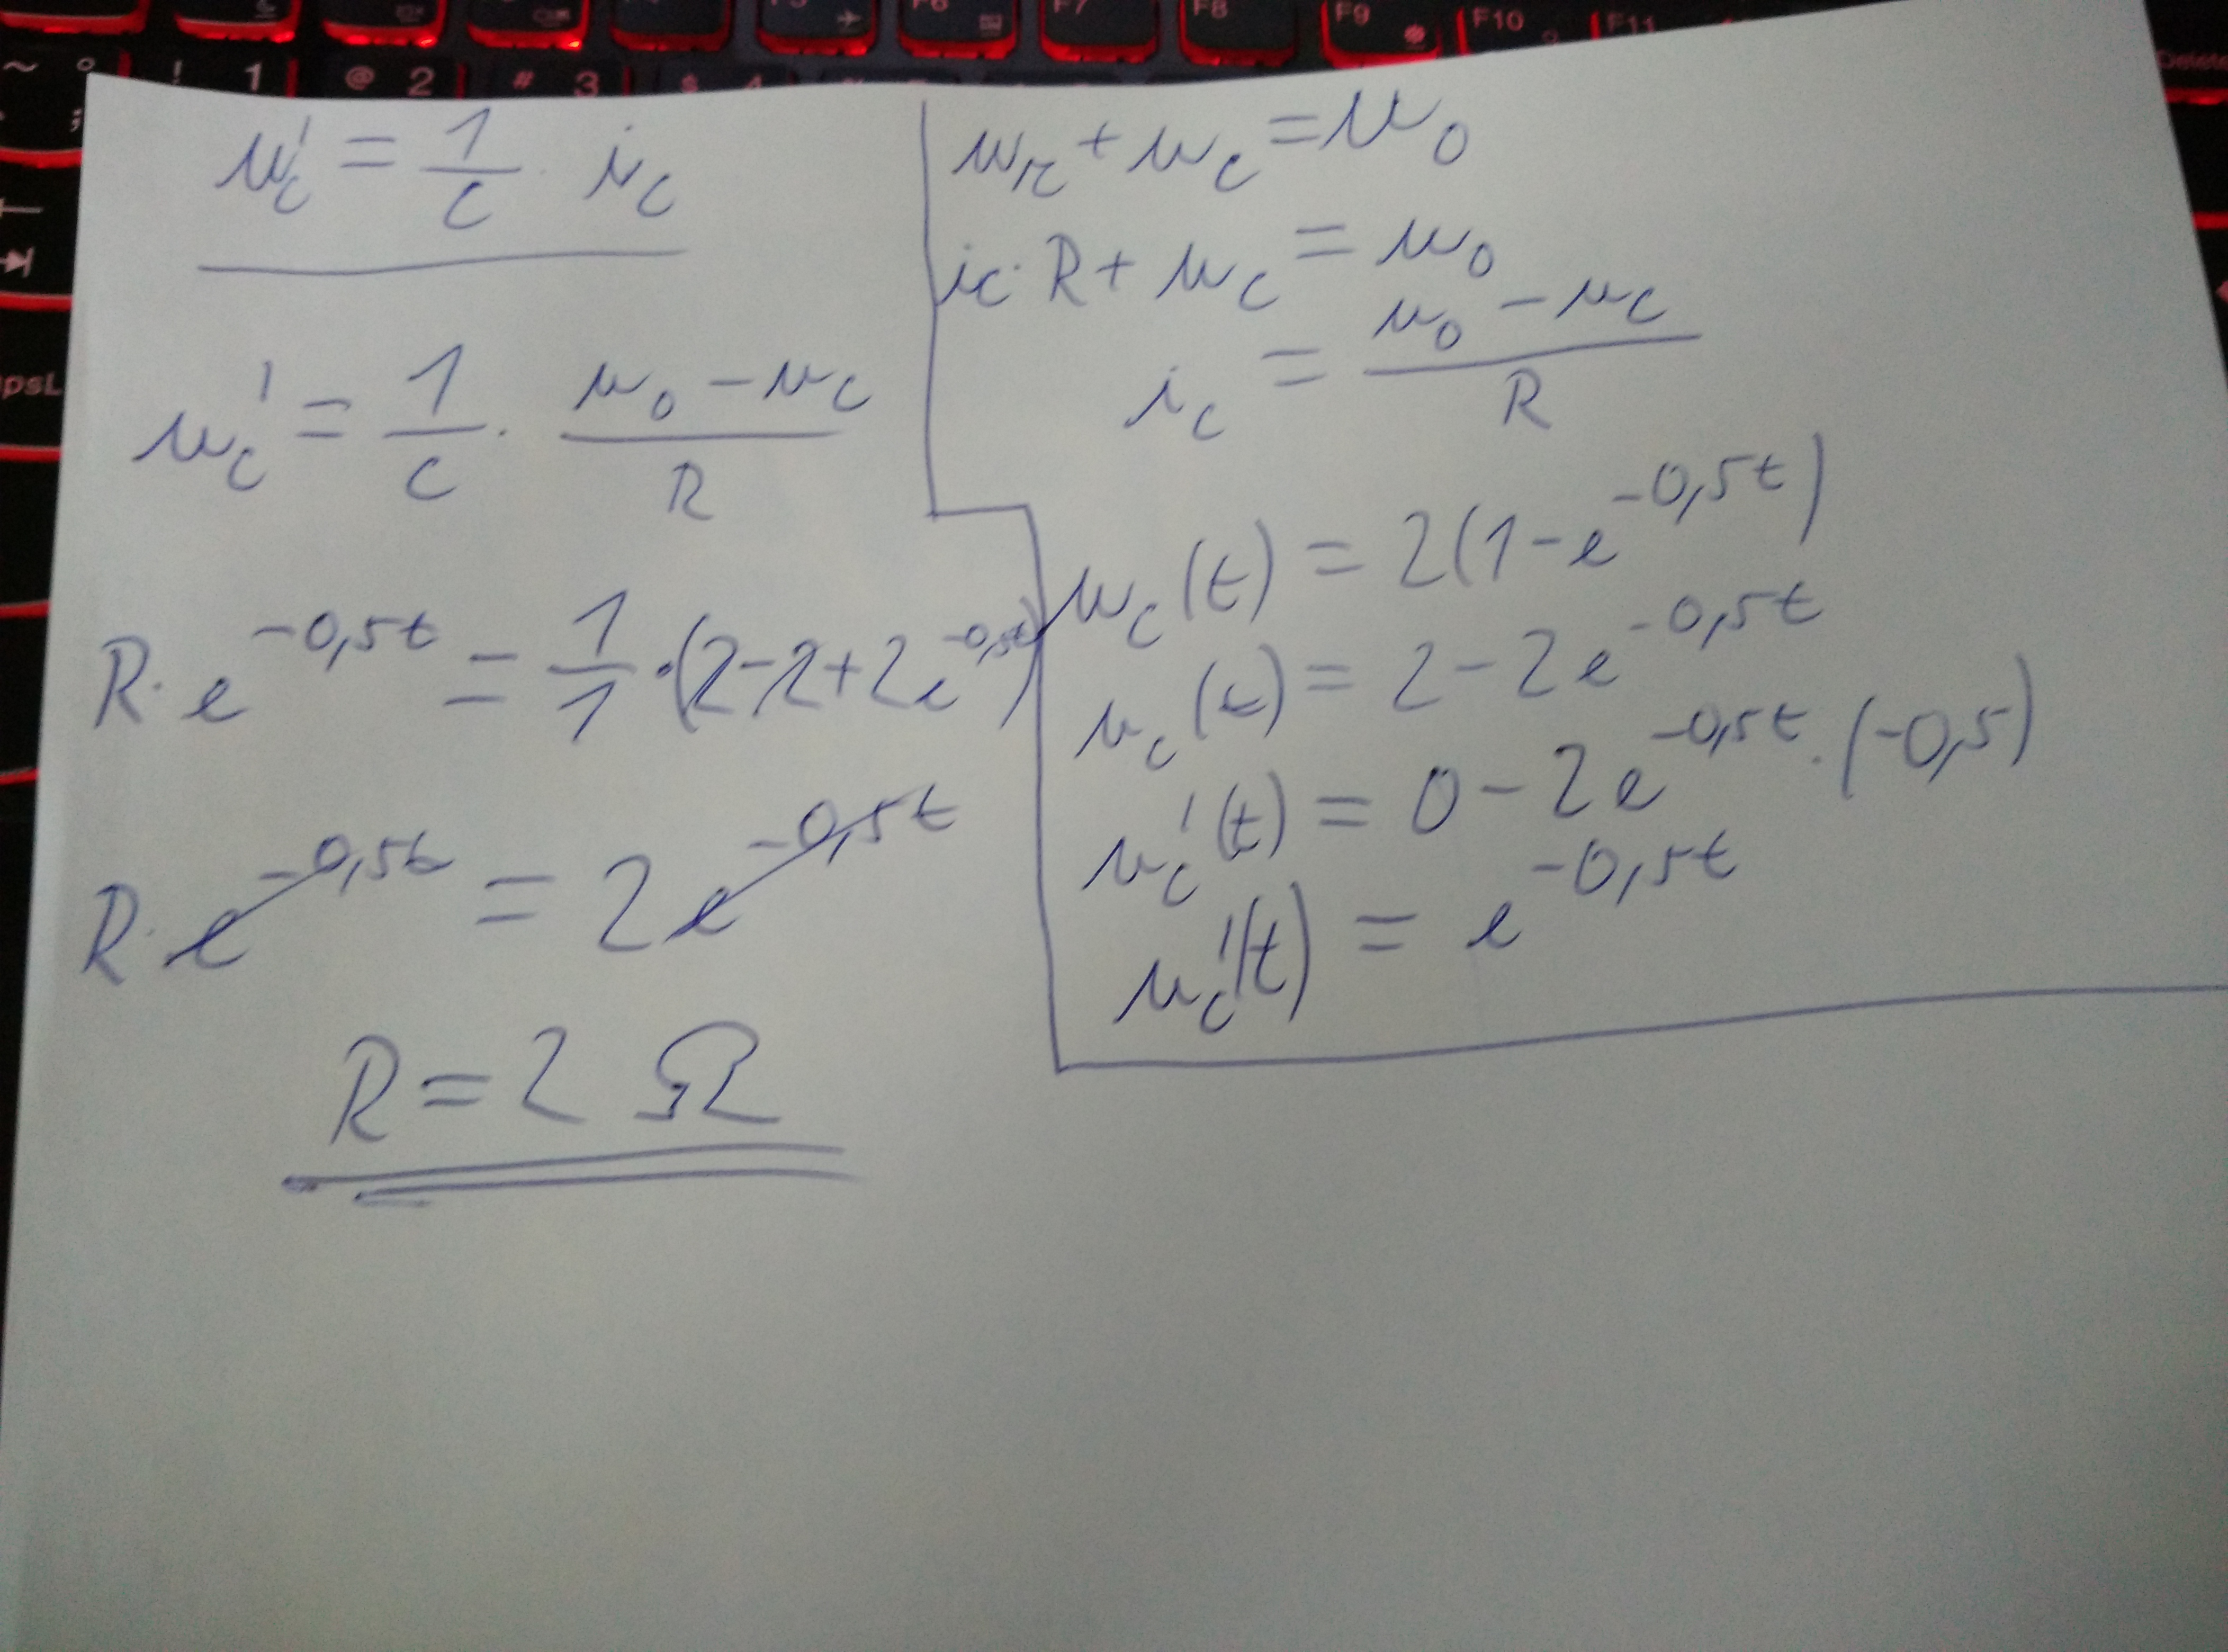 F5 F6 F7 F8 F9 F10 F11
~ ° ! 1 @ 2 # 3 $ 4
;
Delete
psL
u_c' = 1/c · i_c
u_c' = 1/c · (u_0 - u_c)/R
R · e^(-0,5t) = 1/1 · (2-2+2e^(-0,5t))
R · e^(-0,5t) = 2e^(-0,5t)
R = 2 Ω
u_R + u_c = u_0
i_c · R + u_c = u_0
i_c = (u_0 - u_c)/R
u_c(t) = 2(1-e^(-0,5t))
u_c(t) = 2-2e^(-0,5t)
u_c'(t) = 0-2e^(-0,5t) · (-0,5)
u_c'(t) = e^(-0,5t)